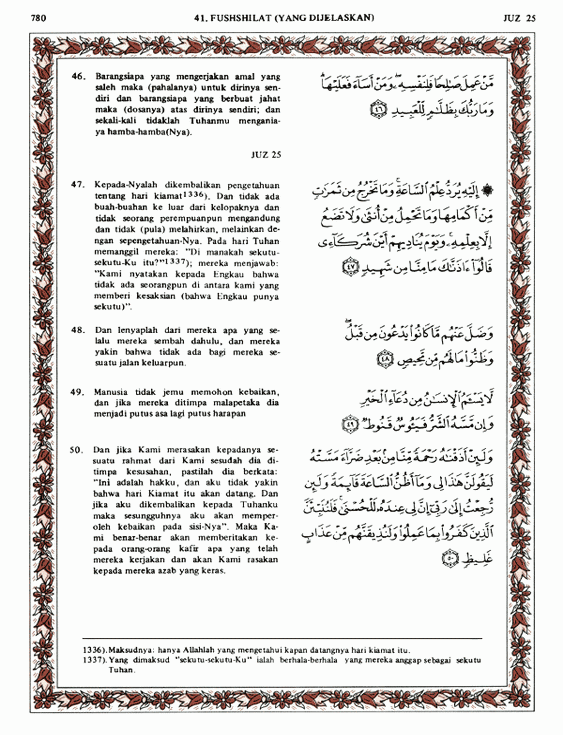 780
41. FUSHSHILAT (YANG DIJELASKAN)
JUZ 25
46. Barangsiapa yang mengerjakan amal yang
saleh maka (pahalanya) untuk dirinya sen-
diri dan barangsiapa yang berbuat jahat
maka (dosanya) atas dirinya sendiri; dan
sekali-kali tidaklah Tuhanmu mengania-
ya hamba-hamba(Nya).
مَّنْ عَمِلَ صَٰلِحًا فَلِنَفْسِهِۦ وَمَنْ أَسَآءَ فَعَلَيْهَا
وَمَا رَبُّكَ بِظَلَّٰمٍ لِّلْعَبِيدِ ٤٦
JUZ 25
47. Kepada-Nyalah dikembalikan pengetahuan
tentang hari kiamat1336). Dan tidak ada
buah-buahan ke luar dari kelopaknya dan
tidak seorang perempuanpun mengandung
dan tidak (pula) melahirkan, melainkan de-
ngan sepengetahuan-Nya. Pada hari Tuhan
memanggil mereka: "Di manakah sekutu-
sekutu-Ku itu?"1337); mereka menjawab:
"Kami nyatakan kepada Engkau bahwa
tidak ada seorangpun di antara kami yang
memberi kesaksian (bahwa Engkau punya
sekutu)".
۞ إِلَيْهِ يُرَدُّ عِلْمُ ٱلسَّاعَةِ وَمَا تَخْرُجُ مِن ثَمَرَٰتٍ
مِّنْ أَكْمَامِهَا وَمَا تَحْمِلُ مِنْ أُنثَىٰ وَلَا تَضَعُ
إِلَّا بِعِلْمِهِۦ وَيَوْمَ يُنَادِيهِمْ أَيْنَ شُرَكَآءِى
قَالُوٓا۟ ءَاذَنَّٰكَ مَامِنَّا مِن شَهِيدٍ ٤٧
48. Dan lenyaplah dari mereka apa yang se-
lalu mereka sembah dahulu, dan mereka
yakin bahwa tidak ada bagi mereka se-
suatu jalan keluarpun.
وَضَلَّ عَنْهُم مَّا كَانُوا۟ يَدْعُونَ مِن قَبْلُ
وَظَنُّوا۟ مَا لَهُم مِّن مَّحِيصٍ ٤٨
49. Manusia tidak jemu memohon kebaikan,
dan jika mereka ditimpa malapetaka dia
menjadi putus asa lagi putus harapan
لَّا يَسْـَٔمُ ٱلْإِنسَٰنُ مِن دُعَآءِ ٱلْخَيْرِ
وَإِن مَّسَّهُ ٱلشَّرُّ فَيَـُٔوسٌ قَنُوطٌ ٤٩
50. Dan jika Kami merasakan kepadanya se-
suatu rahmat dari Kami sesudah dia di-
timpa kesusahan, pastilah dia berkata:
"Ini adalah hakku, dan aku tidak yakin
bahwa hari Kiamat itu akan datang. Dan
jika aku dikembalikan kepada Tuhanku
maka sesungguhnya aku akan memper-
oleh kebaikan pada sisi-Nya". Maka Ka-
mi benar-benar akan memberitakan ke-
pada orang-orang kafir apa yang telah
mereka kerjakan dan akan Kami rasakan
kepada mereka azab yang keras.
وَلَئِنْ أَذَقْنَٰهُ رَحْمَةً مِّنَّا مِنۢ بَعْدِ ضَرَّآءَ مَسَّتْهُ
لَيَقُولَنَّ هَٰذَا لِى وَمَآ أَظُنُّ ٱلسَّاعَةَ قَآئِمَةً وَلَئِن
رُّجِعْتُ إِلَىٰ رَبِّىٓ إِنَّ لِى عِندَهُۥ لَلْحُسْنَىٰ فَلَنُنَبِّئَنَّ
ٱلَّذِينَ كَفَرُوا۟ بِمَا عَمِلُوا۟ وَلَنُذِيقَنَّهُم مِّنْ عَذَابٍ
غَلِيظٍ ٥٠
1336). Maksudnya: hanya Allahlah yang mengetahui kapan datangnya hari kiamat itu.
1337). Yang dimaksud "sekutu-sekutu-Ku" ialah berhala-berhala yang mereka anggap sebagai sekutu
Tuhan.